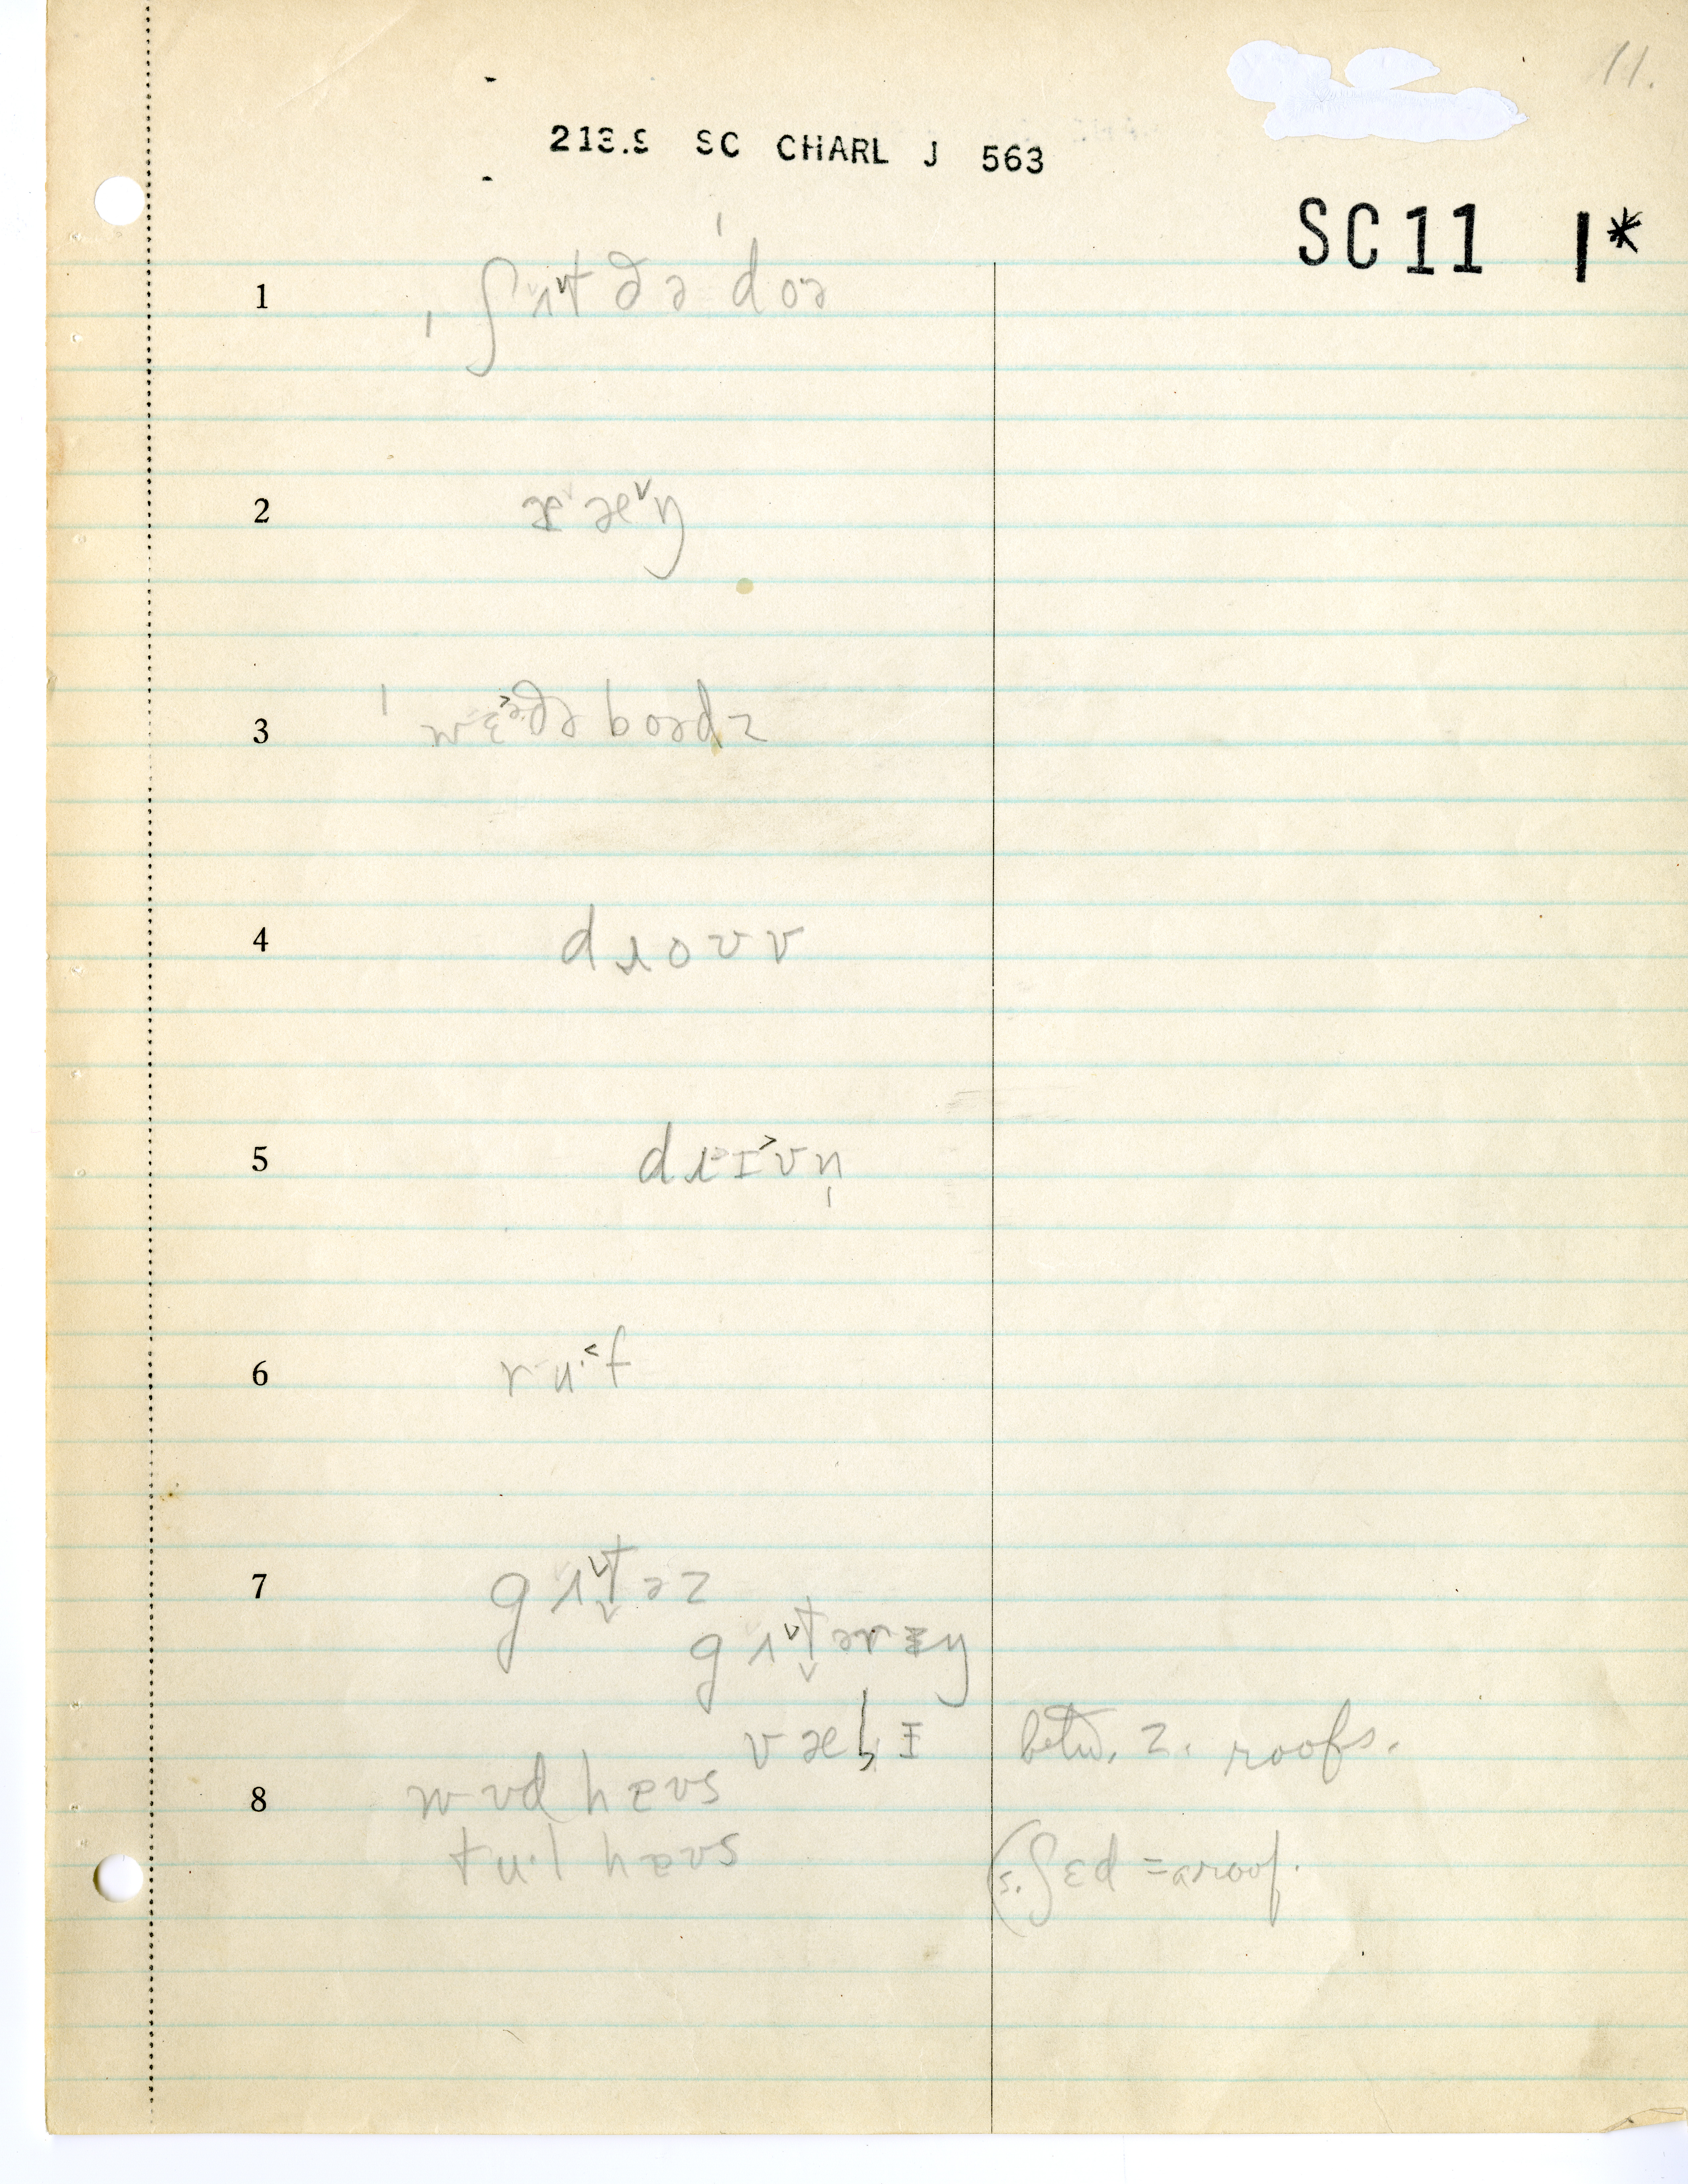 11.
213.9 SC CHARL J 563
SC11 1*
1 ˌʃʌ˅t ðə ˈdoə
2
3 ˈwɛə˃ðə boədz
4 dɹoʊv
5 dɹɪ˃vn̩
6 ru·˂f
7 gʌ˅t̬əz
gʌ˅t̬ərɪŋ
betw. 2. roofs.
8 wʊd haʊs
tu·l haʊs
(s. ʃɛd = a roof.